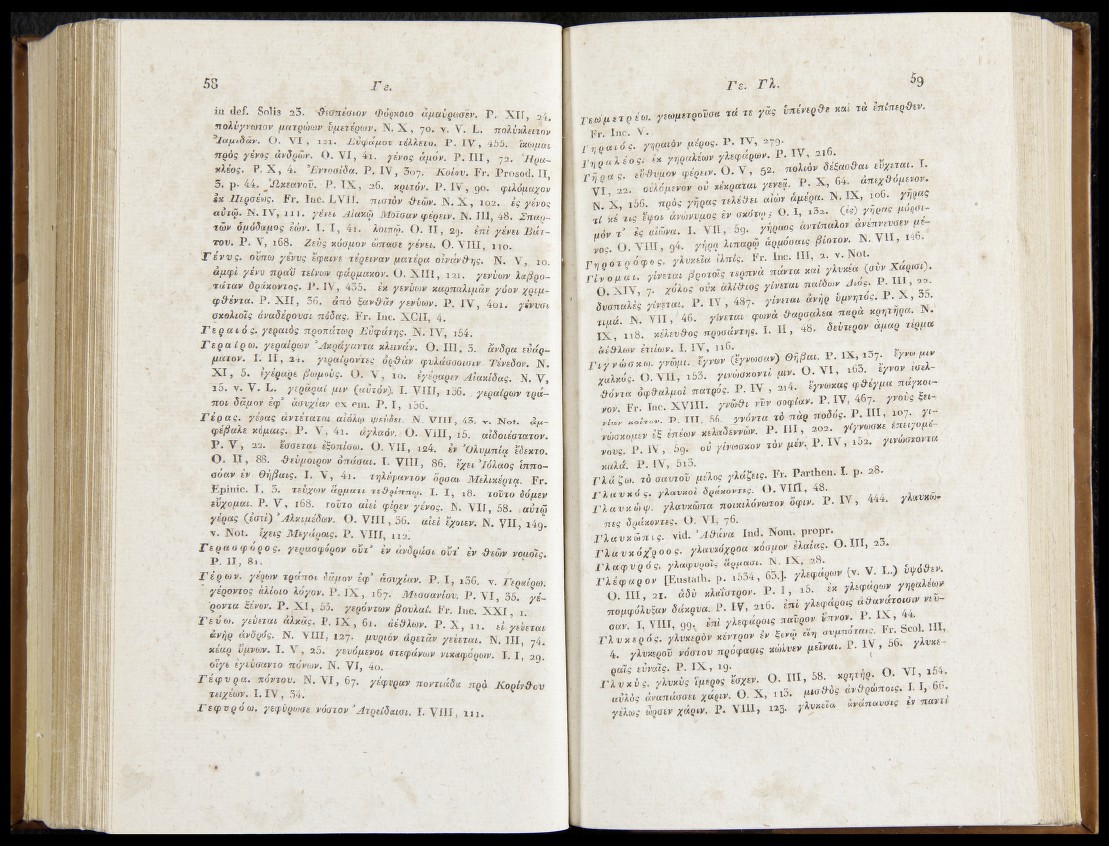 58
Γε.
in def. Solis 23. θεσπέσιον Φόρκοιο ἀμαύρωσεν. P. XII, 24.
πολύγνωτον ματρώων ὑμετέρων. N. X, 70. v. V. L. πολύκλειτον
Ἰαμιδᾶν. O. VI, 121. Εὐφάμου τέλλετο. P. IV, 455. ἵκωμαι
πρὸς γένος ἀνδρῶν. O. VI, 41. γένος ἀμόν. P. III, 72. Ἡρα-
κλέος. P. X, 4. Ἐννοσίδα. P. IV, 307. Κοίου. Fr. Prosod. II,
3. p. 44. Ὠκεανοῦ. P. IX, 26. κριτόν. P. IV, 90. φιλόμαχον
ἐκ Περσέως. Fr. Inc. LVII. πιστὸν θεῶν. N. X, 102. ἐς γένος
αὐτῷ. N. IV, 111. γένει Αἰακῷ Μοῖσαν φέρειν. N. III, 48. Σπαρ-
τῶν ὁμόδαμος ἐών. I. I, 41. λοιπῷ. O. II, 29. ἐπὶ γένει Βάτ-
του. P. V, 168. Ζεὺς κόσμον ὤπασε γένει. O. VIII, 110.
Γένυς. οὔπω γένυς ἔφαινε τέρειναν ματέρα οἰνάνθης. N. V, 10.
ἀμφὶ γένυ πραῢ τείνων φάρμακον. O. XIII, 121. γενύων λαβρο-
τάταν δράκοντος. P. IV, 435. ἐκ γενύων καρπαλιμᾶν γόον χριμ-
φθέντα. P. XII, 36. ἀπὸ ξανθᾶν γενύων. P. IV, 401. γένυσι
σκολιοῖς ἀναδέρουσι πόδας. Fr. Inc. XCII, 4.
Γεραιός. γεραιὸς προπάτωρ Εὐφάτης. N. IV, 154.
Γεραίρω. γεραίρων Ἀκράγαντα κλεινάν. O. III, 3. ἄνδρα εὐάρ-
ματον. I. II, 24. γεραίροντες ὀρθὰν φυλάσσοισιν Τένεδον. N.
XI, 5. ἐγέραρε βωμούς. O. V, 10. ἐγέραρεν Αἰακίδας. N. V,
15. v. V. L. γεράραί μιν (αὐτόν). I. VIII, 136. γεραίρων τρά-
ποι δᾶμον ἐφ' ἀσυχίαν ex em. P. I, 136.
Γέρας. γέρας ἀντέταται αἰόλῳ ψεύδει. N. VIII, 43. v. Not. ἀμ-
φέβαλε κόμαις. P. V, 41. ἀγλαόν. O. VIII, 15. αἰδοιέστατον.
P. V, 22. ἔσσεται ἐξοπίσω. O. VII, 124. ἐν Ὀλυμπίᾳ ἔδεκτο.
O. II, 88. θεύμοιρον ὀπάσαι. I. VIII, 86. ἔχει Ἰόλαος ἱππο-
σόαν ἐν Θήβαις. I. V, 41. τηλέφαντον ὄρσαι Μελικέρτᾳ. Fr.
Epinic. I, 3. τεύχων ἅρματι τεθρίππῳ. I. I, 18. τοῦτο δόμεν
εὔχομαι. P. V, 168. τοῦτο αἰεὶ φέρεν γένος. N. VII, 58. αὐτῷ
γέρας (ἐστὶ) Ἀλκιμέδων. O. VIII, 36. αἰεὶ ἔχοιεν. N. VII, 149.
v. Not. ἔχεις Μεγάροις. P. VIII, 112.
Γερασφόρος. γερασφόρον οὔτ' ἐν ἀνδράσι οὔτ' ἐν θεῶν νομοῖς.
P. II, 81.
Γέρων. γέρων τράποι δᾶμον ἐφ' ἀσυχίαν. P. I, 136. v. Γεραίρω.
γέροντος ἁλίοιο λόγον. P. IX, 167. Μεσσανίου. P. VI, 35. γέ-
ροντα ξένον. P. XI, 53. γερόντων βουλαί. Fr. Inc. XXI, 1.
Γεύω. γεύεται ἀλκᾶς. P. IX, 61. ἀέθλων. P. X, 11. εἰ γεύεται
ἀνὴρ ἀνδρός. N. VIII, 127. μυρίον ἀρετᾶν γεύεται. N. III, 74.
κέαρ ὕμνων. I. V, 25. γευόμενοι στεφάνων νικαφόρων. I. I, 29.
οἵγε ἐγεύσαντο πόνων. N. VI, 40.
Γέφυρα. πόντου. N. VI, 67. γέφυραν ποντιάδα πρὸ Κορίνθου
τειχέων. I. IV, 34.
Γεφυρόω. γεφύρωσε νόστον Ἀτρείδαισι. I. VIII, 111.
Γε. Γλ.
59
Γεωμετρέω. γεωμετροῦσα τά τε γᾶς ὑπένερθε καὶ τὰ ἐπίπερθεν.
Fr. Inc. V.
Γηραιός. γηραιὸν μέρος. P. IV, 279.
Γηραλέος. ἐκ γηραλέων γλεφάρων. P. IV, 216.
Γῆρας. εὔθυμον φέρειν. O. V, 52. πολιὸν δέξασθαι εὔχεται. I.
VI, 22. οὐλόμενον οὐ κέκραται γενεᾷ. P. X, 64. ἀπεχθόμενον.
N. X, 156. πρὸς γῆρας τελέθει αἰὼν ἁμέρα. N. IX, 106. γῆρας
τί κέ τις ἕψοι ἀνώνυμος ἐν σκότῳ; O. I, 132. (ἐς) γῆρας μόρσι-
μόν τ' ἐς αἰῶνα. I. VII, 59. γήραος ἀντίπαλον ἀνέπνευσεν μέ-
νος. O. VIII, 94. γήρᾳ λιπαρῷ ἁρμόσαις βίοτον. N. VII, 146.
Γηροτρόφος. γλυκεῖα ἐλπίς. Fr. Inc. III, 2. v. Not.
Γίνομαι. γίνεται βροτοῖς τερπνὰ πάντα καὶ γλυκέα (σὺν Χάρισι).
O. XIV, 7. χόλος οὐκ ἀλίθιος γίνεται παίδων Διός. P. III, 22.
δυσπαλὲς γίνεται. P. IV, 487. γίνεται ἀνὴρ ὑμνητός. P. X, 35.
τιμά. N. VII, 46. γίνεται φωνὰ θαρσαλέα παρὰ κρητῆρα. N.
IX, 118. κέλευθος προσάντης. I. II, 48. δεύτερον ἆμαρ τέρμα
ἀέθλων ἐτείων. I. IV, 116.
Γιγνώσκω. γνῶμι. ἔγνων (ἔγνωσαν) Θῆβαι. P. IX, 137. ἔγνω μιν
χαλκός. O. VII, 153. γινώσκοντί μιν. O. VI, 163. ἔγνον ἰσελ-
θόντα ὀφθαλμοὶ πατρός. P. IV, 214. ἔγνωκας φθέγμα πάγκοι-
νον. Fr. Inc. XVIII. γνῶθι νῦν σοφίαν. P. IV, 467. γνοὺς ξει-
νίαν κοίταν. P. III, 56. γνόντα τὸ πὰρ ποδός. P. III, 107. γι-
νώσκομεν ἐξ ἐπέων κελαδεννῶν. P. III, 202. γίγνωσκε ἐπειγομέ-
νους. P. IV, 59. οὐ γίνωσκον τὸν μέν. P. IV, 152. γινώσκοντα
καλά. P. IV, 513.
Γλάζω. τὸ σαυτοῦ μέλος γλάζεις. Fr. Parthen. I. p. 28.
Γλαυκός. γλαυκοὶ δράκοντες. O. VIII, 48.
Γλαυκώψ. γλαυκῶπα ποικιλόνωτον ὄφιν. P. IV, 444. γλαυκῶ-
πες δράκοντες. O. VI, 76.
Γλαυκῶπις. vid. Ἀθάνα Ind. Nom. propr.
Γλαυκόχροος. γλαυκόχροα κόσμον ἐλαίας. O. III, 23.
Γλαφυρός. γλαφυροῖς ἅρμασι. N. IX, 28.
Γλέφαρον [Eustath. p. 1534, 63.]. γλεφάρων (v. V. L.) ὑψόθεν.
O. III, 21. ἁδὺ κλαΐστρον. P. I, 15. ἐκ γλεφάρων γηραλέων
πομφόλυξαν δάκρυα. P. IV, 216. ἐπὶ γλεφάροις ἀθανάτοισιν νεῦ-
σαν. I. VIII, 99. ἐπὶ γλεφάροις παῦρον ὕπνον. P. IX, 44.
Γλυκερός. γλυκερὸν κέντρον ἐν ξενῷ εἴη συμπόταις. Fr. Scol. III,
4. γλυκεροῦ νόστου πρόφασις κώλυεν μεῖναι. P. IV, 56. γλυκε-
ραῖς εὐναῖς. P. IX, 19.
Γλυκύς. γλυκὺς ἵμερος ἔσχεν. O. III, 58. κρητήρ. O. VI, 154.
αὐλὸς ἀναπάσσει χάριν. O. X, 113. μισθὸς ἀνθρώποις. I. I, 66.
γέλως ὦρσεν χάριν. P. VIII, 123. γλυκεῖα ἀνάπαυσις ἐν παντὶ